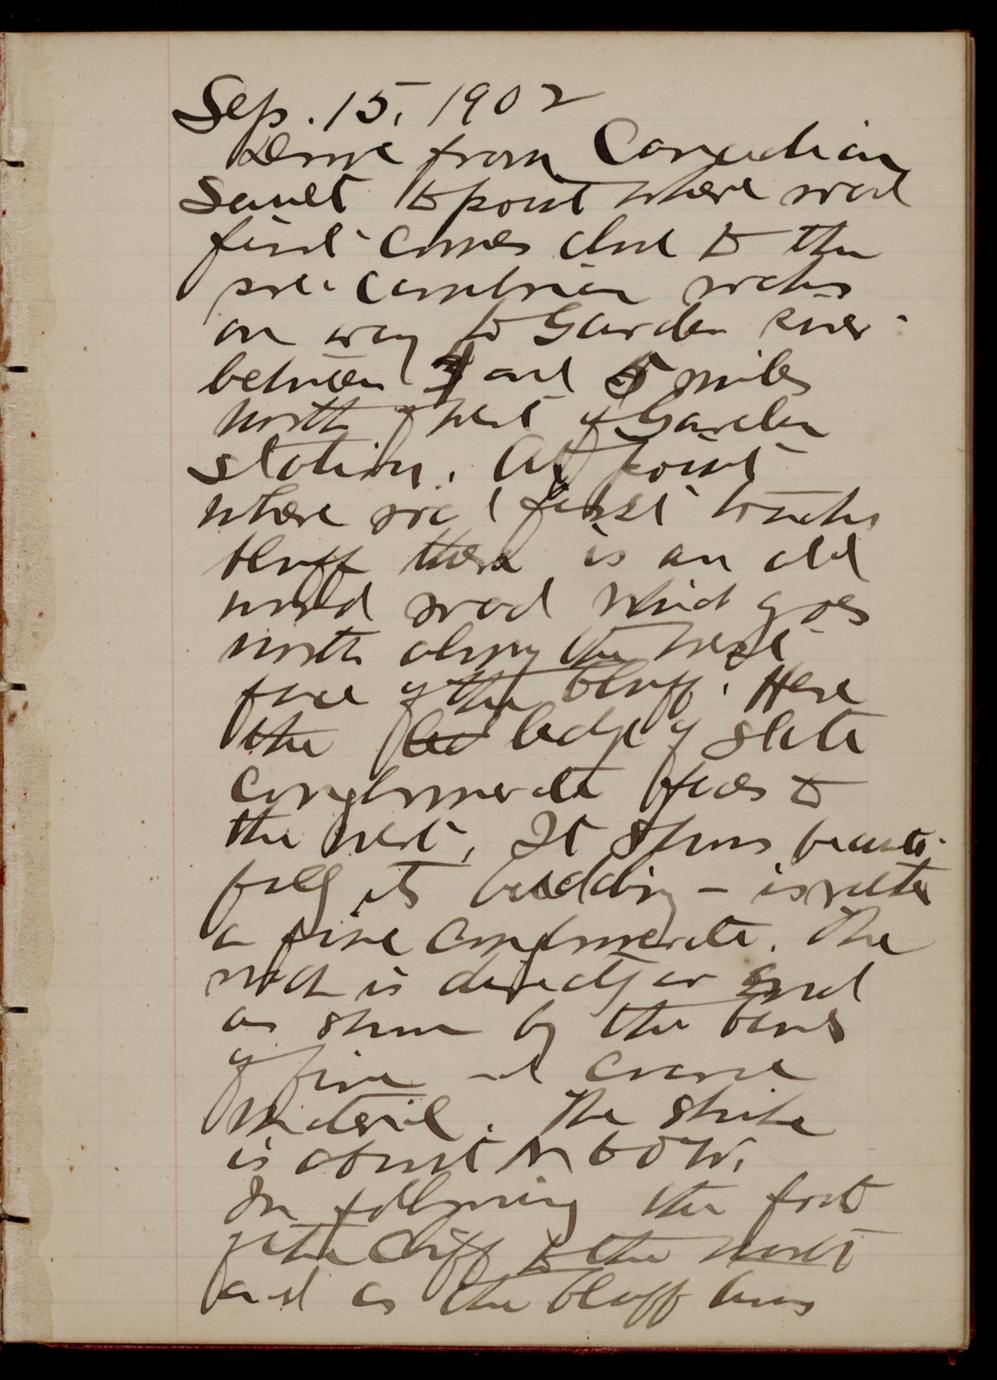 Sep. 15, 1902
Drive from Canadian
Sault to point where road
first comes close to the
pre-Cambrian rocks
on way to Garden River
between 4 and 5 miles
north & west of Garden
station. At point
where road first touches
bluff there is an old
wood road which goes
north along the west
face of the bluff. Here
the ledge of slate
conglomerate faces to
the west. It shows beauti-
fully its bedding – is rather
a fine conglomerate. The
rock is directly on end
as shown by the bands
of fine and coarse
material. The strike
is about N 60 W.
In following the foot
of the cliff to the north
and as the bluff turns